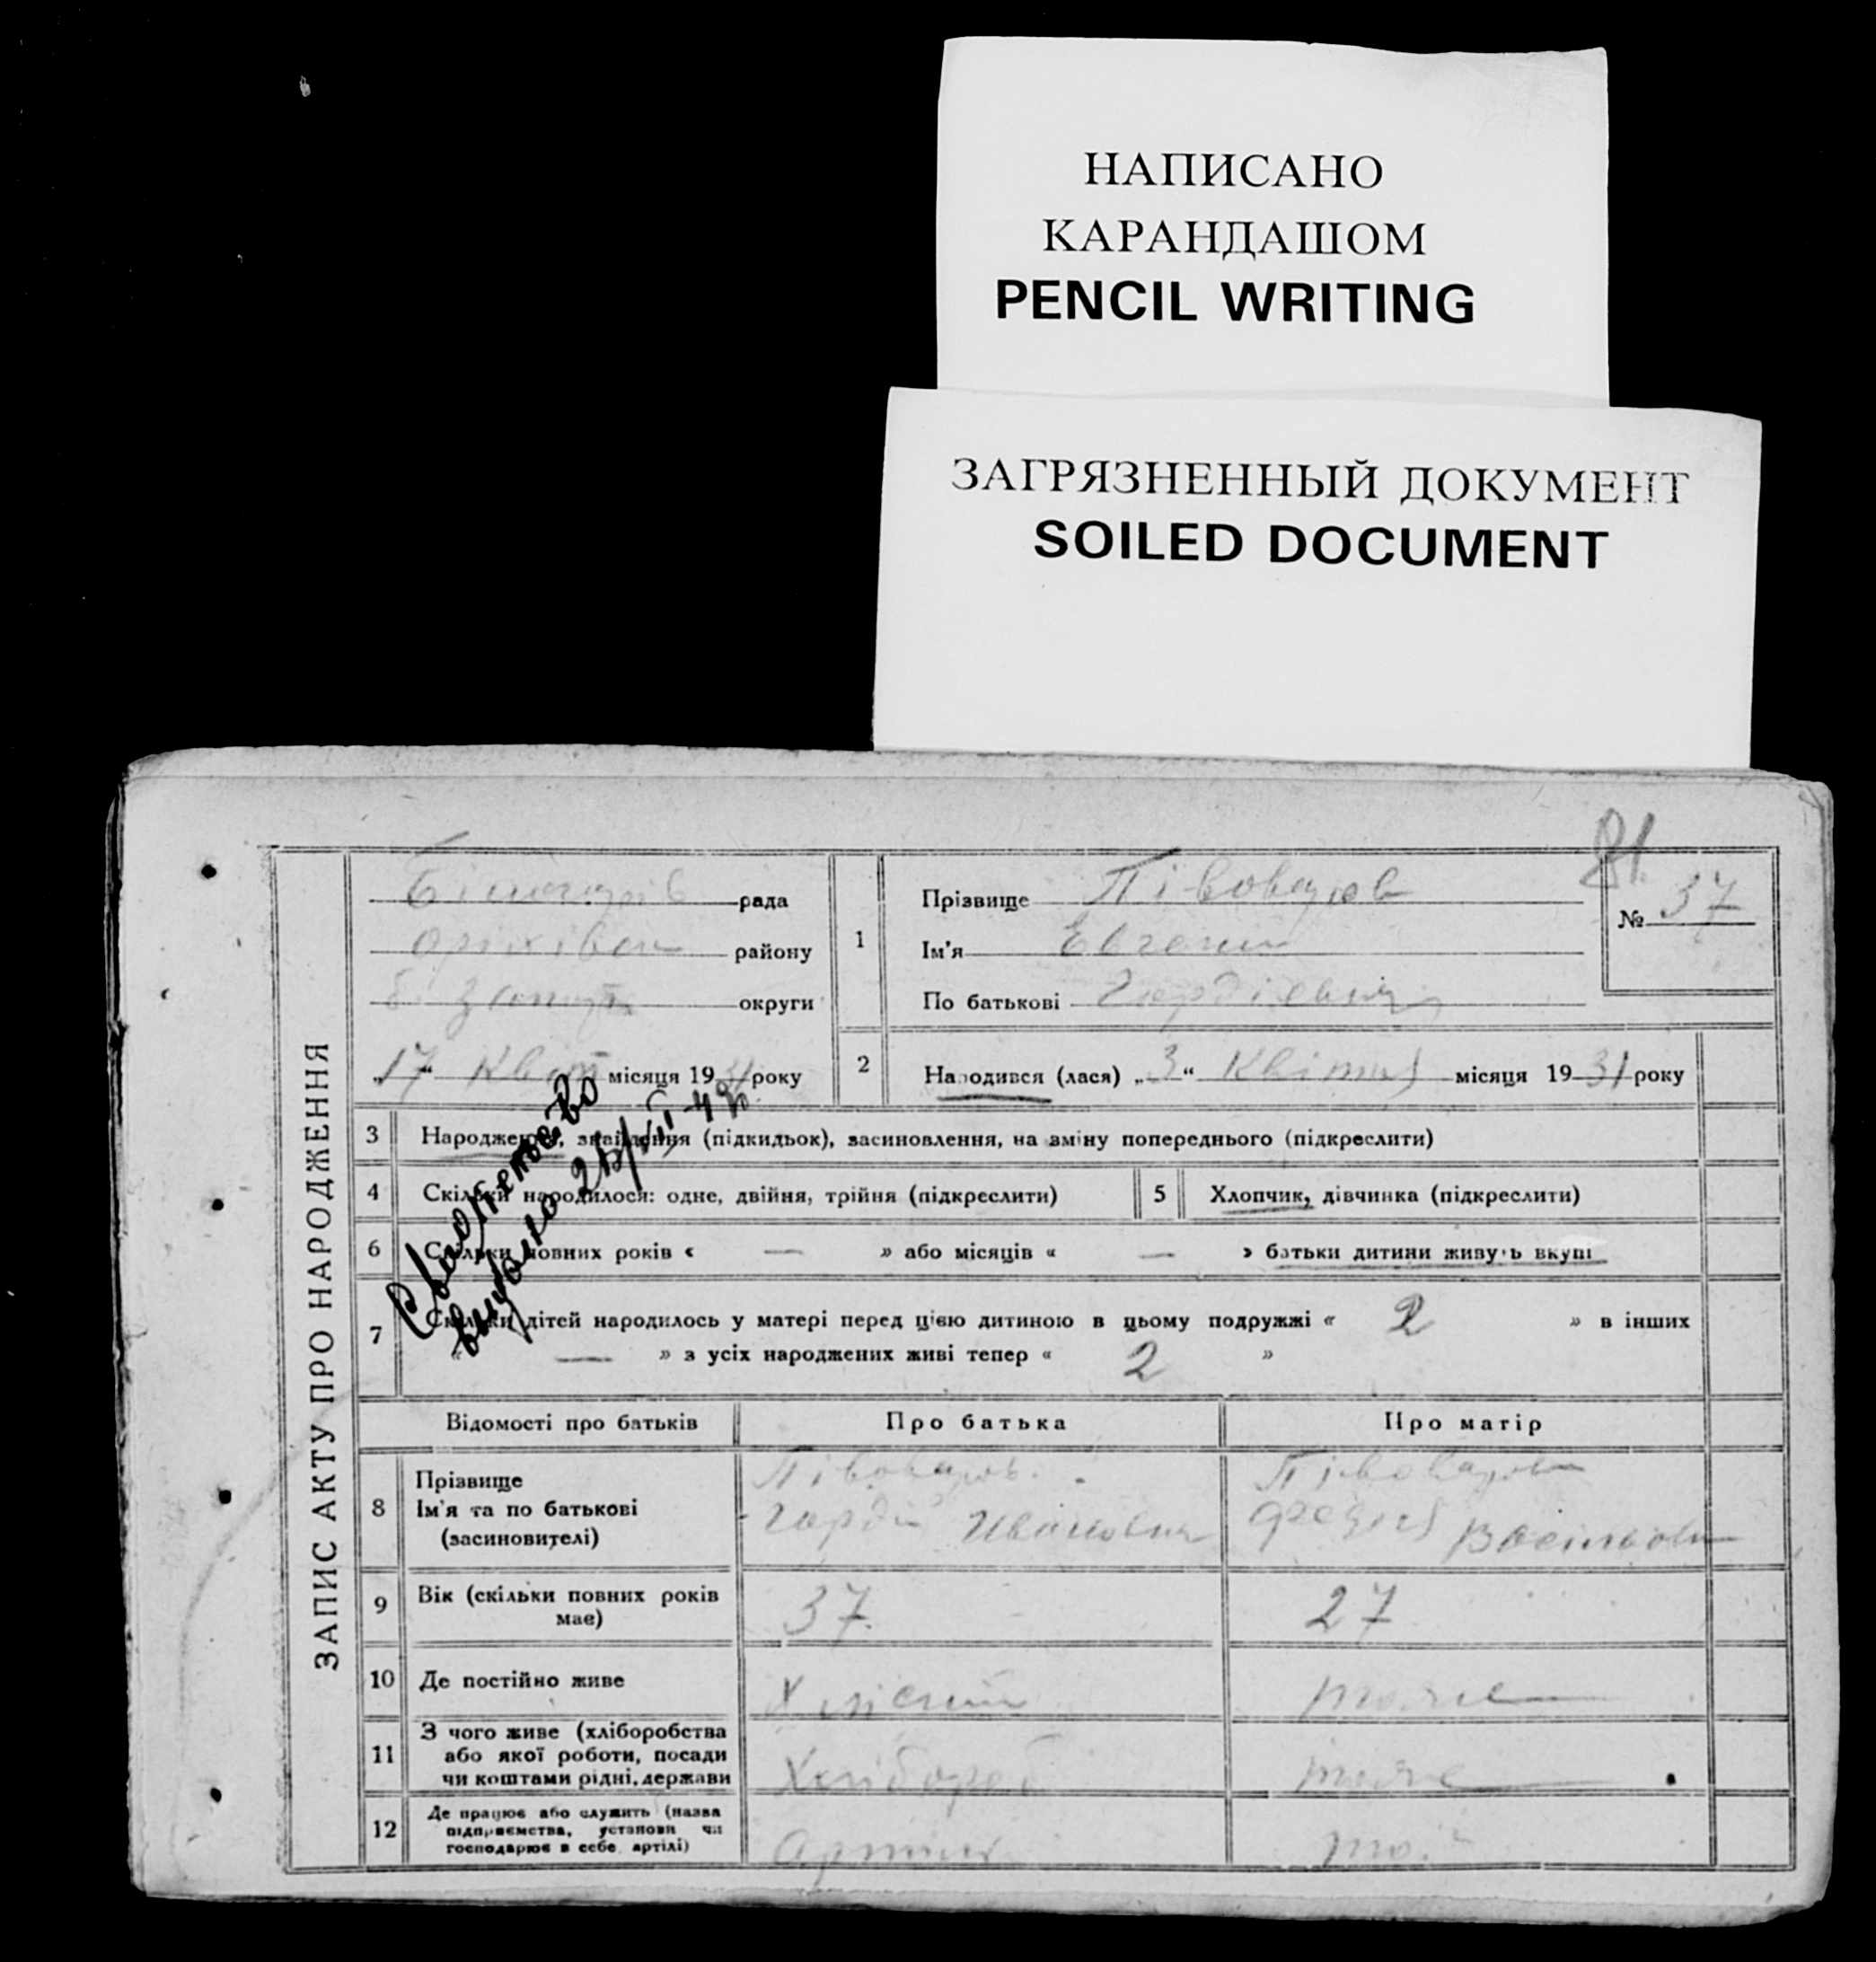 НАПИСАНО
КАРАНДАШОМ
PENCIL WRITING
ЗАГРЯЗНЕННЫЙ ДОКУМЕНТ
SOILED DOCUMENT
81.
ЗАПИС АКТУ ПРО НАРОДЖЕННЯ
рада
району
округи
"17" Квіт місяця 1931 року
1
Прізвище Півоваров
Ім'я Евгений
По батькові Гордієвич
№ 37
2
Народився (лася) „3“ Квітня місяця 1931 року
3 Народження, знайдення (підкидьок), засиновлення, на зміну попереднього (підкреслити)
4 Скільки народилося: одне, двійня, трійня (підкреслити)
5 Хлопчик, дівчинка (підкреслити)
6 Скільки повних років « — » або місяців « — » батьки дитини живуть вкупі
7 Скільки дітей народилось у матері перед цією дитиною в цьому подружжі « 2 » в інших
« — » з усіх народжених живі тепер « 2 »
Відомості про батьків Про батька Про матір
8 Прізвище
Ім'я та по батькові
(засновителі)
Півоваров
Гордій Иванович
Півоварова
9 Вік (скільки повних років
має)
37.
27
10 Де постійно живе
тоже
11 З чого живе (хліборобства
або якої роботи, посади
чи коштами рідні, держави
Хлібороб
тоже
12 Де працює або служить (назва
підприємства, установи чи
господарює в себе артілі)